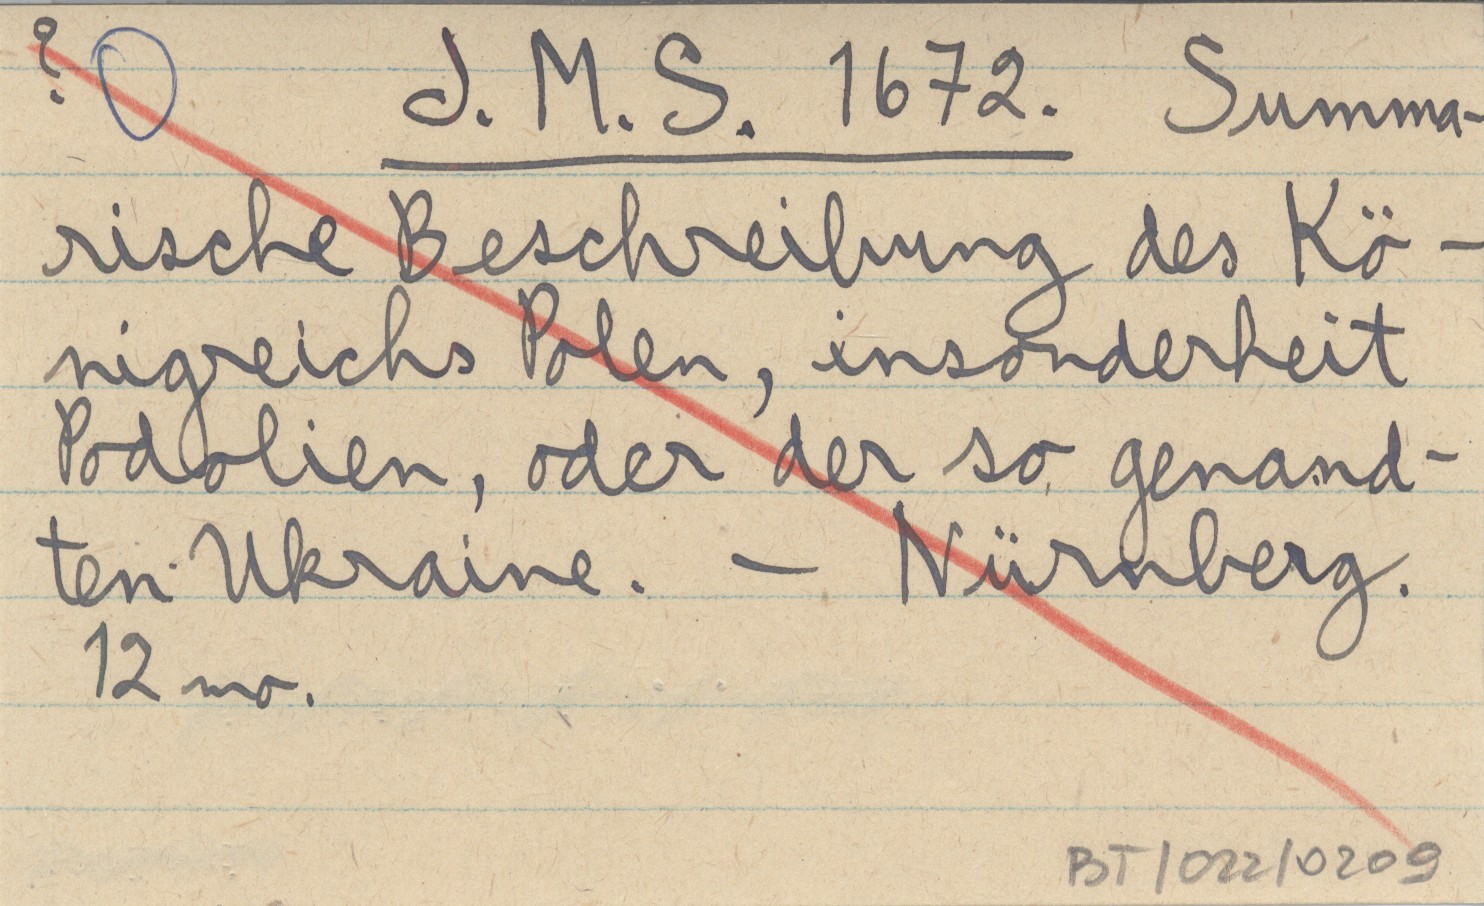 ? J. M. S. 1672. Summa-
rische Beschreibung des Kö-
nigreichs Polen, insonderheit
Podolien, oder der so genand-
ten Ukraine. — Nürnberg.
12 mo.
BT/022/0209